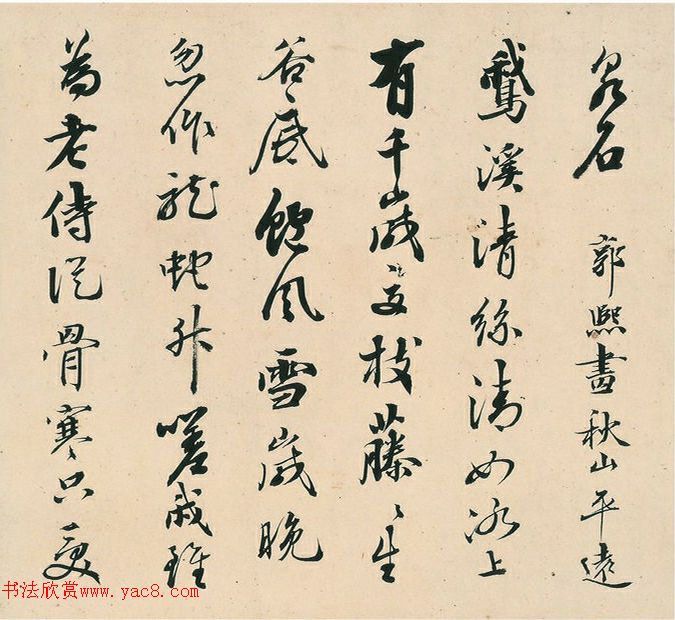 泉石 郭熙畫秋山平遠
鵞溪清絲清如冰上
有千歲交枝藤〻生
谷底飽風雪歲晚
忽作龍蛇升嗟我雖
為老侍從骨寒只受
书法欣赏www.yac8.com